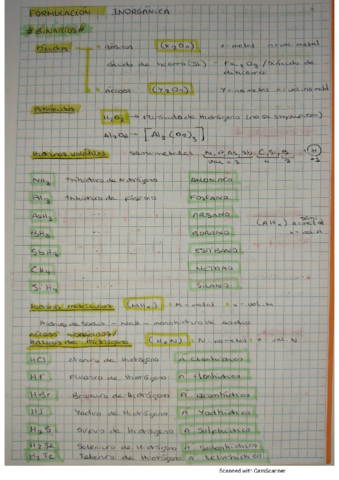 FORMULACIÓN INORGÁNICA
#BINARIOS#
Óxidos = básicos (X₂Oₙ) X = metal n = val. metal
óxido de hierro (III) - Fe₂O₃ / trióxido de dihierro
= ácidos (Y₂Oₙ) Y = no metal n = val. no metal
Peróxidos
H₂O₂ → Peróxido de hidrógeno
[Al₂(O₂)₃]
Hidruros volátiles semimetales N, P, As, Sb, C, Si, B
NH₃ Trihidruro de nitrógeno AMONIACO
PH₃ Trihidruro de fósforo FOSFANO
AsH₃ " " ARSANO
BH₃ " " BORANO
SbH₃ " " ESTIBANO
CH₄ " " METANO
SiH₄ " " SILANO
Hidruros metálicos (MHₙ) M = metal n = vol. M
Hidruro de sodio - NaH - monohidruro de sodio
(HₙN) N = no metal n = val. N
HCl Cloruro de hidrógeno A. Clorhídrico
HF Fluoruro de hidrógeno A. Fluorhídrico
HBr Bromuro de hidrógeno A. Bromhídrico
HI Yoduro de hidrógeno A. Yodhídrico
H₂S Sulfuro de hidrógeno A. Sulfhídrico
H₂Se Selenuro de hidrógeno A. Selenhídrico
H₂Te Telururo de hidrógeno A. Telurhídrico
Scanned with CamScanner